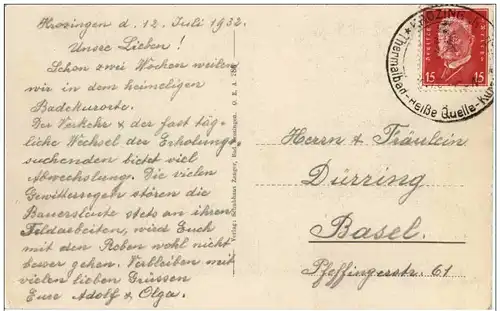 Krozingen d. 12. Juli 1932.
Unsre Lieben!
Schon zwei Wochen weilen
wir in dem heimeligen
Badekurorte.
Der Verkehr & der fast täg-
liche Wechsel der Erholungs-
suchenden bietet viel
Abwechslung. Die vielen
Gewitterregen stören die
Bauersleute stets an ihren
Feldarbeiten, wird Euch
mit den Reben wohl nicht
besser gehen. Verbleiben mit
vielen lieben Grüssen
Eure Adolf & Olga.
Verlag: Schuhhaus Zenger, Bad Krozingen. G. E. A.
KROZINGEN
Thermalbad-Heiße Quelle-Kur
15 15
DEUTSCHES REICH
Herrn & Fräulein
Dürring
Basel.
Pfeffingerstr. 61